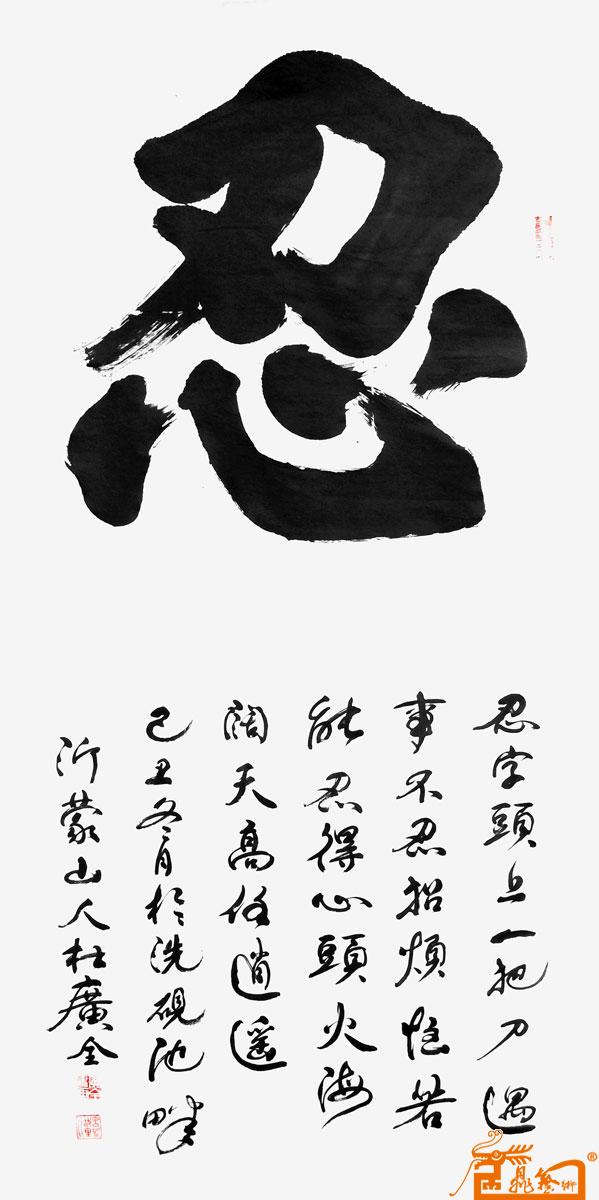 忍
忍字頭上一把刀遇
事不忍招煩恼若
能忍得心頭火海
闊天高任逍遥
己丑冬月於洗硯池畔
沂蒙山人杜廣全